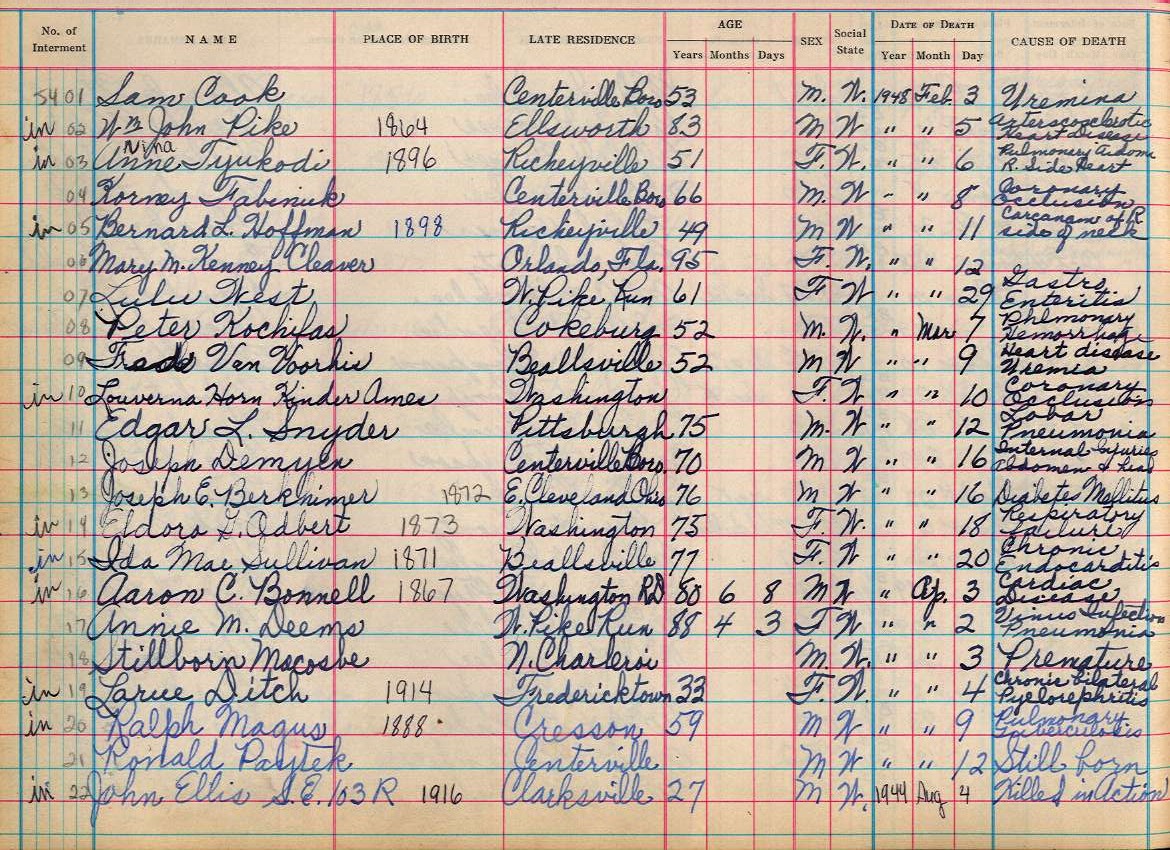 No. of Interment NAME PLACE OF BIRTH LATE RESIDENCE AGE Years Months Days SEX Social State DATE OF DEATH Year Month Day CAUSE OF DEATH
5401 Sam Cook Centerville Boro 53 M. W. 1948 Feb. 3 Uremina
in 02 Wm John Pike 1864 Ellsworth 83 M W " " 5 Arterscosclerotic Heart Disease
in 03 Anne Nina Tyukodi 1896 Richeyville 51 F. W. " " 6 Pulmonary R. Side Heart
04 Korney Fabinick Centerville Boro 66 M. W. " " 8 Coronary Occlusion
in 05 Bernard L. Hoffman 1898 Richeyville 49 M W " " 11 side of neck
06 Mary M. Kenney Cleaver Orlando, Fla. 95 F. W. " " 12
07 Lulu West W. Pike Run 61 F W " " 29 Gastro Enteritis
08 Peter Kochifas Cokeburg 52 M. W. " Mar 7 Phlmonary Hemorrhage
09 Van Voorhis Beallsville 52 M W " " 9 Heart disease Uremia
in 10 Louverna Horn Kinder Ames Washington F. W. " " 10 Coronary Occlusion
11 Edgar L. Snyder Pittsburgh 75 M. W " " 12 Lobar Pneumonia
12 Joseph Demyen Centerville Boro. 70 M W " " 16 Internal Injuries abdomen & head
13 Joseph E. Berkhimer 1872 E. Cleveland Ohio 76 M W " " 16 Diabetes Mellitus
in 14 Eldora G. Odbert 1873 Washington 75 F W. " " 18 Respiratory Failure
in 15 Ida Mae Sullivan 1871 Beallsville 77 F. W. " " 20 Chronic Endocarditis
in 16 Aaron C. Bonnell 1867 Washington RD 80 6 8 M W " Ap. 3 Cardiac Disease
17 Annie M. Deems W. Pike Run 88 4 3 F W " " 2 Virus Infection Pneumonia
18 Stillborn Macosbe N. Charleroi M. W. " " 3 Premature
in 19 Larue Ditch 1914 Fredericktown 33 F. W. " " 4 Chronic bilateral Pyelonephritis
in 20 Ralph Magus 1888 Cresson 59 M W " " 9 Pulmonary Tuberculosis
21 Ronald Pastek Centerville M W " " 12 Still born
in 22 John Ellis S.E. 103 R 1916 Clarksville 27 M W. 1944 Aug 4 Killed in Action